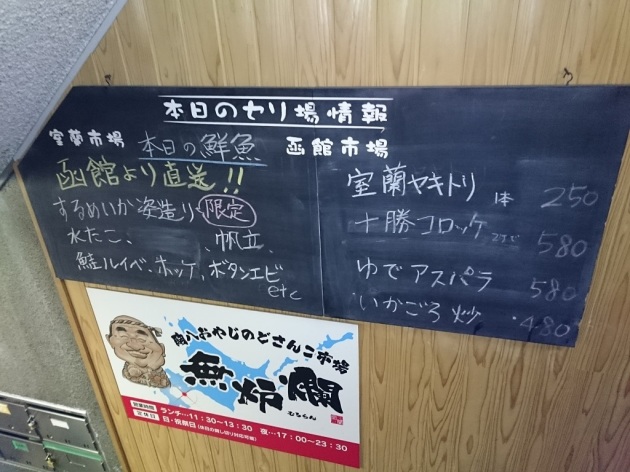 本日のセリ場情報
室蘭市場 本日の鮮魚 函館市場
函館より直送!!
するめいか姿造り 限定
水たこ、 帆立、
鮭ルイベ、ホッケ、ボタンエビ
etc
室蘭ヤキトリ 1本 250
十勝コロッケ 580
ゆでアスパラ 580
いかごろ炒 480
おやじのどさんこ市場
むろらん
営業時間 ランチ…11:30〜13:30 夜…17:00〜23:30
定休日 日・祝祭日